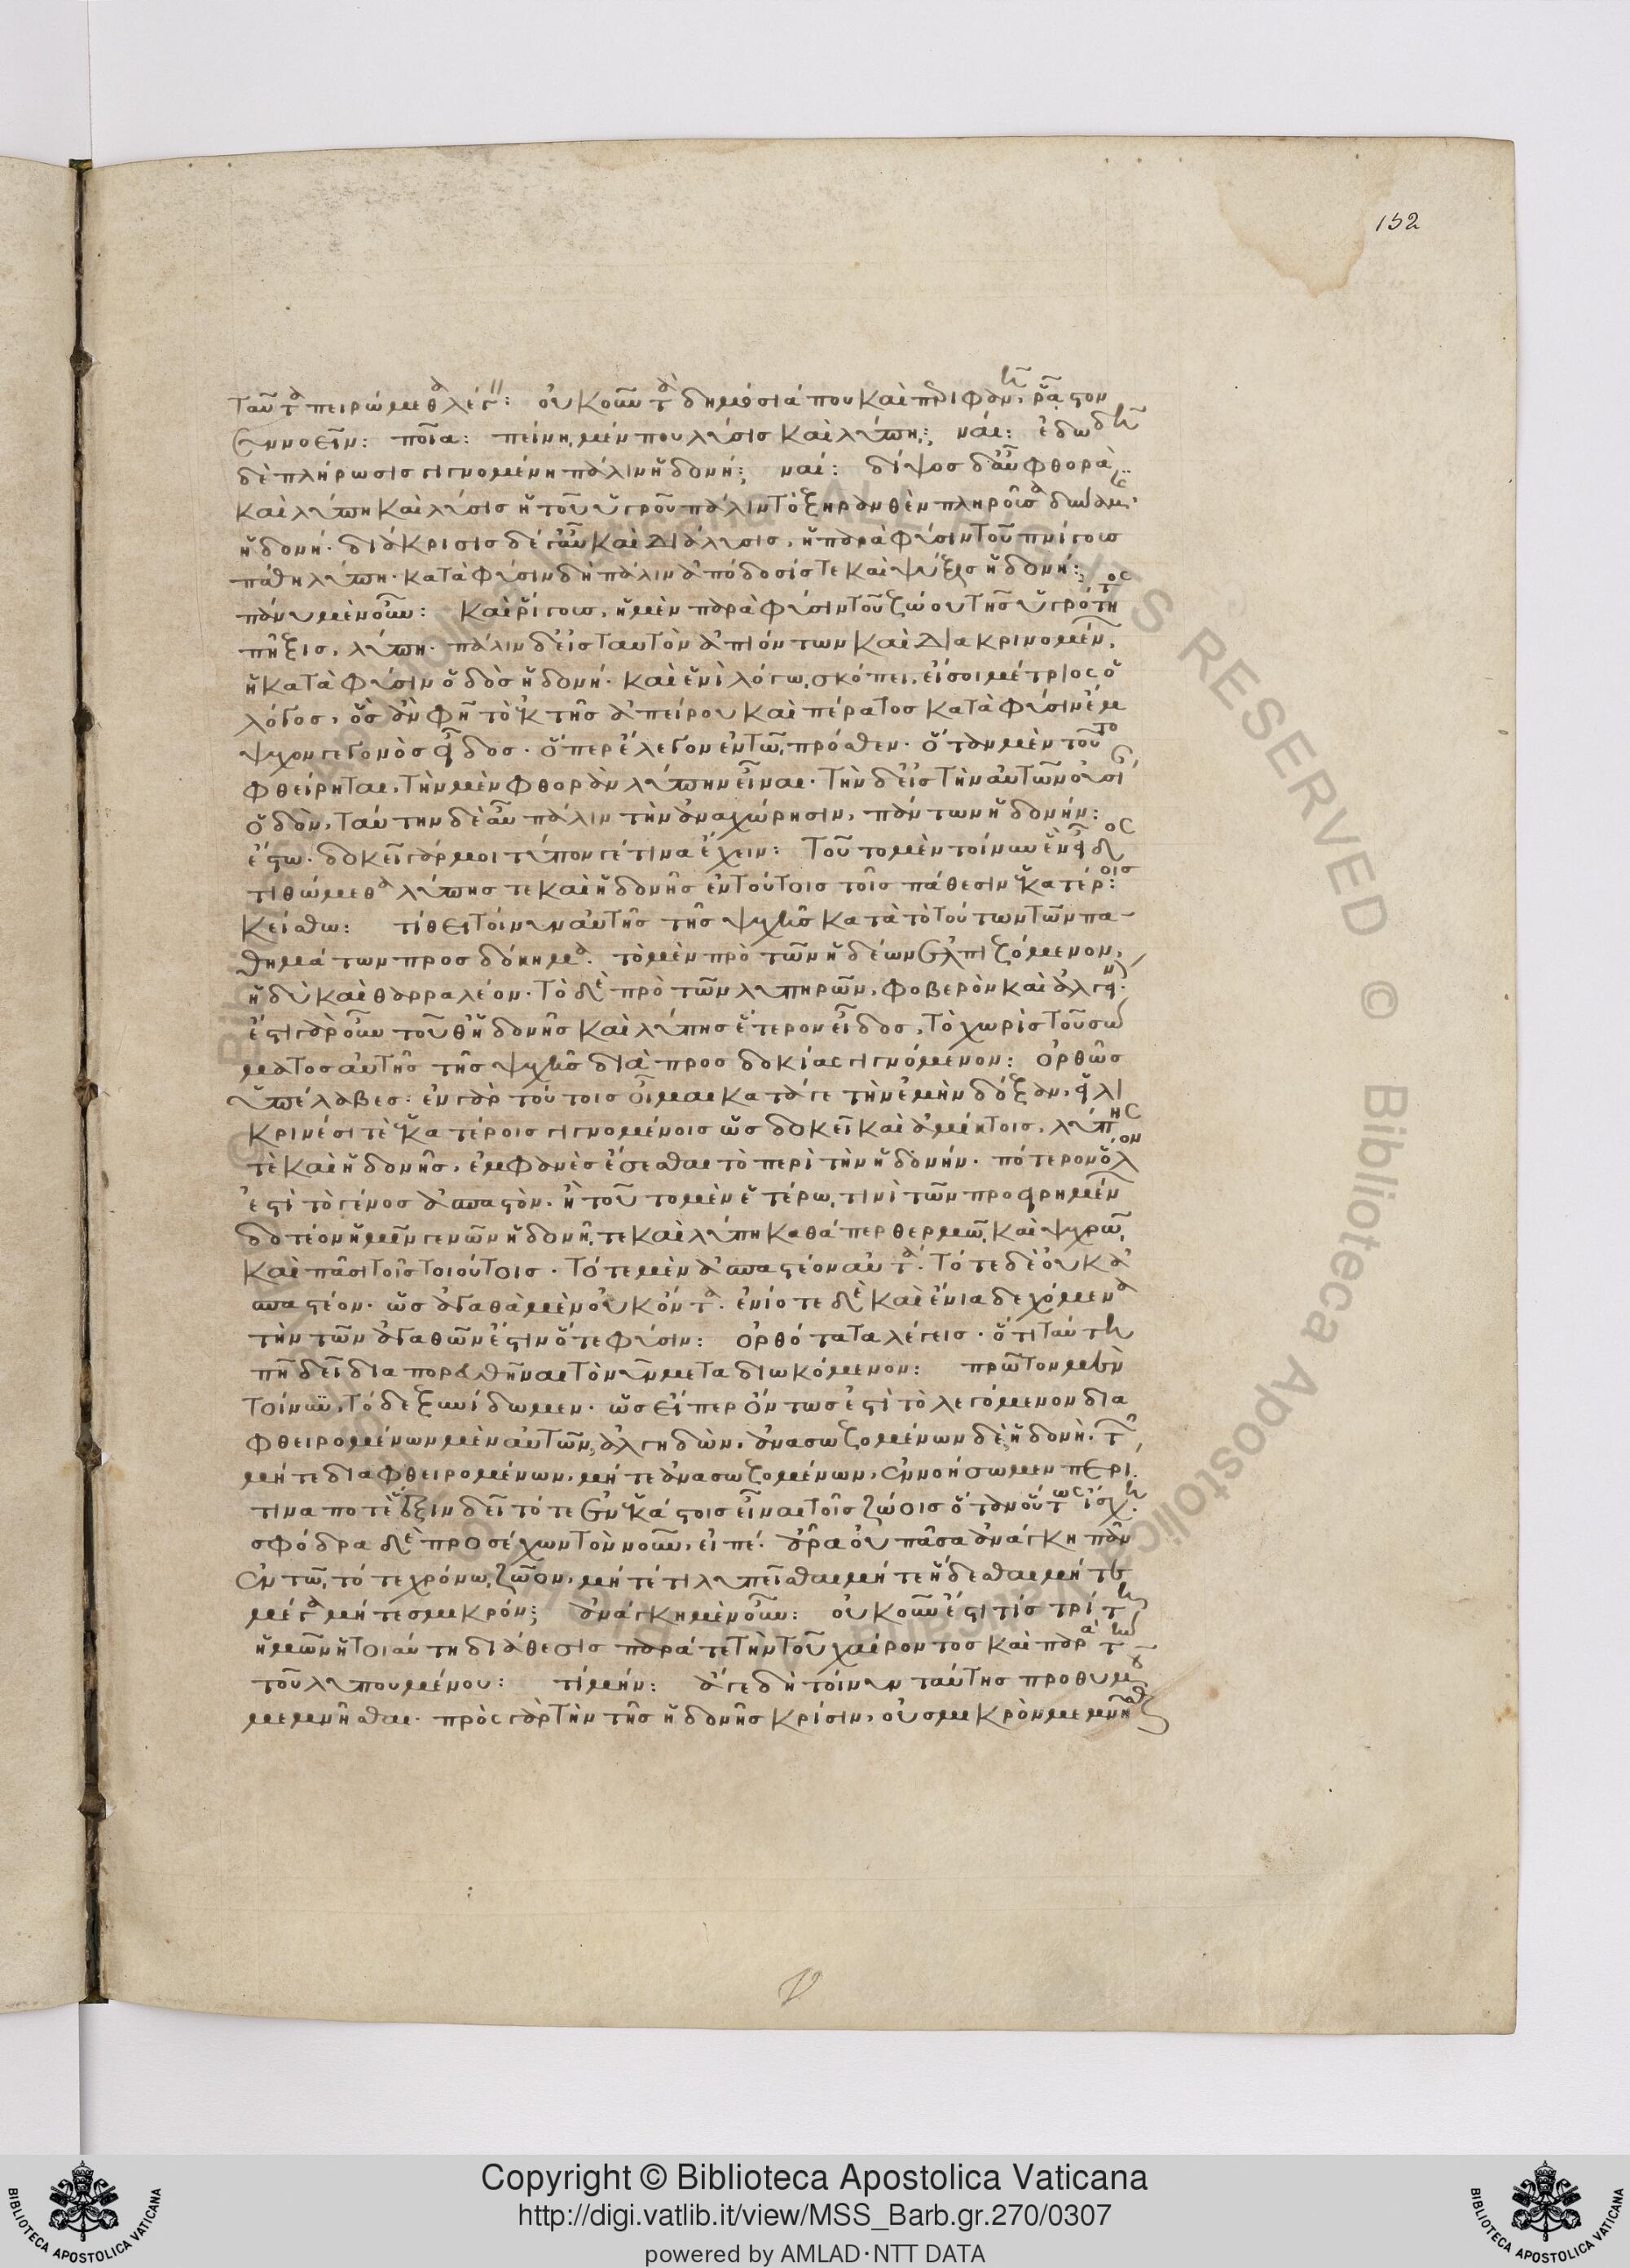 152
ταῦτα πειρώμεθα λέγ: οὐκοῦν τὰ δημόσιά που καὶ περιφανῆ, ῥᾷστον
ἐννοεῖν: ποῖα: πείνη, μέν που λύσις καὶ λύπη; ναί: ἐδωδὴ
δὲ πλήρωσις γιγνομένη πάλιν ἡδονή; ναί: δίψος δ' αὖ φθορὰ
καὶ λύπη καὶ λύσις ἡ τοῦ ὑγροῦ πάλιν τὸ ξηρανθὲν πληροῖσα δύναμις,
ἡδονή· διάκρισις δέ γ' αὖ καὶ διάλυσις, ἡ παρὰ φύσιν τοῦ πνίγους
πάθη λύπη· κατὰ φύσιν δὴ πάλιν ἀπόδοσίς τε καὶ ψύξις ἡδονή;
πάνυ μὲν οὖν: καὶ ῥίγους, ἡ μὲν παρὰ φύσιν τοῦ ζώου τῆς ὑγρότητος
πῆξις, λύπη· πάλιν δ' εἰς ταυτὸν ἀπιόντων καὶ διακρινομένων,
ἡ κατὰ φύσιν ὁδὸς ἡδονή· καὶ ἑνὶ λόγω, σκόπει, εἴ σοι μέτριος ὁ
λόγος, ὃς ἂν φῇ τὸ ἐκ τῆς ἀπείρου καὶ πέρατος κατὰ φύσιν ἔμ
ψυχον γεγονὸς εἶδος· ὅπερ ἔλεγον ἐν τῶ, πρόσθεν· ὅταν μὲν τοῦτο
φθείρηται, τὴν μὲν φθορὰν λύπην εἶναι· τὴν δ' εἰς τὴν αὐτῶν οὐσί
ὁδὸν, ταύτην δὲ αὖ πάλιν τὴν ἀναχώρησιν, πάντων ἡδονήν:
ἔστω· δοκεῖ γάρ μοι τύπον γέ τινα ἔχειν: τοῦτο μὲν τοίνυν ἓν εἶδος
τιθώμεθα λύπης τε καὶ ἡδονῆς ἐν τούτοις τοῖς πάθεσιν ἑκατέροις:
κείσθω: τίθει τοίνυν αὐτῆς τῆς ψυχῆς κατὰ τὸ τούτων τῶν πα-
θημάτων προσδόκημα· τὸ μὲν πρὸ τῶν ἡδέων ἐλπιζόμενον,
ἡδὺ καὶ θαρραλέον· τὸ δὲ πρὸ τῶν λυπηρῶν, φοβερὸν καὶ ἀλγεινόν·
ἔστι γὰρ οὖν τοῦθ' ἡδονῆς καὶ λύπης ἕτερον εἶδος, τὸ χωρὶς τοῦ σώ
ματος αὐτῆς τῆς ψυχῆς διὰ προσδοκίας γιγνόμενον: ὀρθῶς
ὑπέλαβες· ἐν γὰρ τούτοις οἶμαι κατά γε τὴν ἐμὴν δόξαν, εἱλι
κρινέσι τὲ ἑκατέροις γιγνομένοις ὡς δοκεῖ καὶ ἀμίκτοις, λύπης
τὲ καὶ ἡδονῆς, ἐμφανὲς ἔσεσθαι τὸ περὶ τὴν ἡδονήν· πότερον ὅλον
ἐστὶ τὸ γένος ἀσπαστὸν· ἢ τοῦτο μὲν ἑτέρω, τινὶ τῶν προειρημένων
δοτέον ἡμῖν γενῶν ἡδονῆ, τε καὶ λύπη καθάπερ θερμῶ, καὶ ψυχρῶ,
καὶ πᾶσι τοῖς τοιούτοις· τότε μὲν ἀσπαστέον αὐτά· τότε δὲ οὐκ ἀ
σπαστέον· ὡς ἀγαθὰ μὲν οὐκ ὄντα· ἐνίοτε δὲ καὶ ἔνια δεχόμενα
τὴν τῶν ἀγαθῶν ἔστιν ὅτε φύσιν: ὀρθότατα λέγεις· ὅτι ταύτη
πῆ δεῖ διαπορευθῆναι τὸ νῦν μεταδιωκόμενον: πρῶτον μὲν
τοίνυν, τόδε ξυνίδωμεν· ὡς εἴπερ ὄντως ἐστὶ τὸ λεγόμενον δια
φθειρομένων μὲν αὐτῶν, ἀλγηδὼν, ἀνασωζομένων δὲ ἡδονὴ. τῶν
μήτε διαφθειρομένων, μήτε ἀνασωζομένων, ἐννοήσωμεν περι·
τίνα ποτὲ ἕξιν δεῖ τότε ἐν ἑκάστοις εἶναι τοῖς ζώοις ὅταν οὕτως ἴσχη.
σφόδρα δὲ προσέχων τὸν νοῦν, εἰπέ· ἆρα οὐ πᾶσα ἀνάγκη πᾶν
ἐν τῶ, τότε χρόνω, ζῶον, μήτέ τι λυπεῖσθαι μήτε ἥδεσθαι μήτε
μέγα μήτε σμικρόν; ἀνάγκη μὲν οὖν: οὐκοῦν ἔστι τίς τρίτη
ἡμῶν ἡ τοιαύτη διάθεσις παρά τε τὴν τοῦ χαίροντος καὶ παρὰ τὴν
τοῦ λυπουμένου: τί μήν: ἄγε δὴ τοίνυν ταύτης προθυμοῦ
μεμνῆσθαι· πρὸς γὰρ τὴν τῆς ἡδονῆς κρίσιν, οὐ σμικρὸν μεμνῆσθαι
Copyright © Biblioteca Apostolica Vaticana
http://digi.vatlib.it/view/MSS_Barb.gr.270/0307
powered by AMLAD·NTT DATA